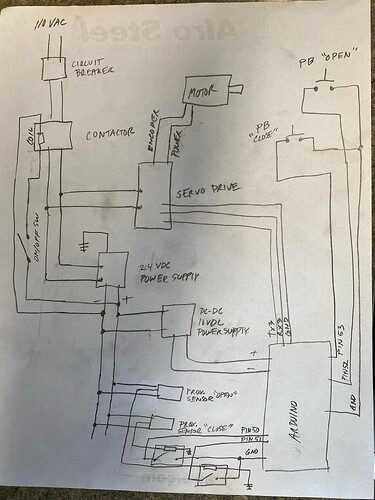 110 VAC
CIRCUIT
BREAKER
PB "OPEN"
MOTOR
COIL
CONTACTOR
ENCODER
POWER
"PB
CLOSE"
SERVO DRIVE
ON/OFF SW
24 VDC
POWER SUPPLY
+
-
DC-DC
POWER SUPPLY
TX3
RX3
GND
+
-
PIN 53
PIN 52
GND
ARDUINO
PROX
SENSOR "OPEN"
PROX
SENSOR "CLOSE"
PIN 50
PIN 51
GND
Alro Steel